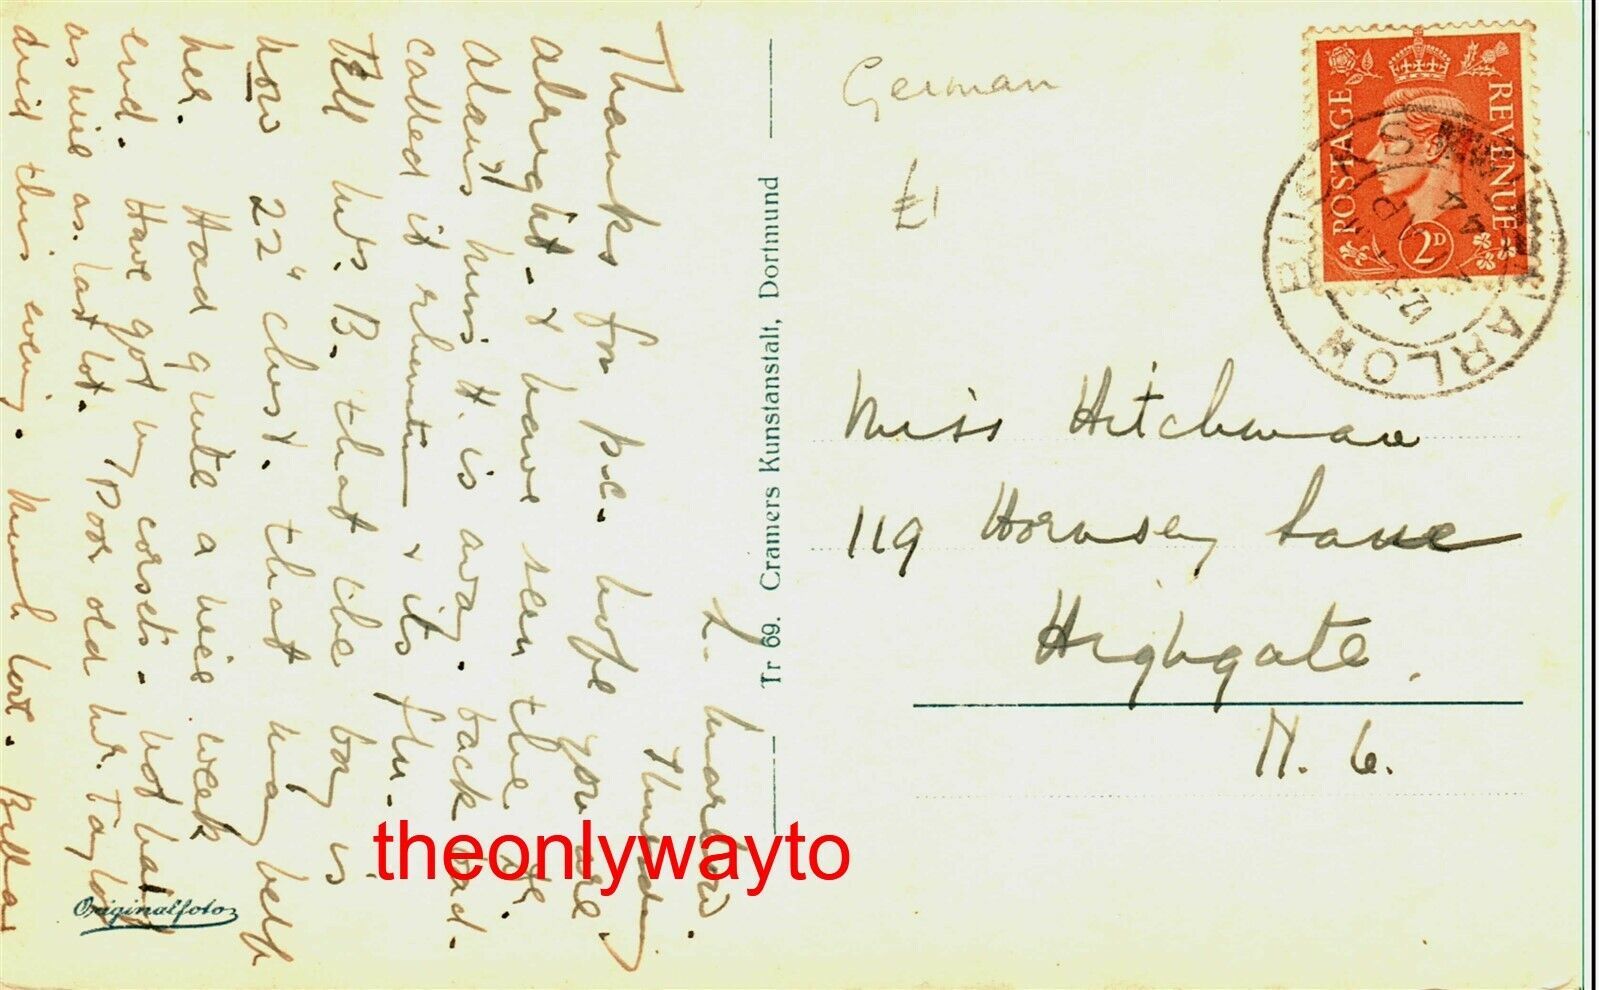 L. Marlow.
Thursday
Thanks for p.c. hope you are
alright. & have seen the Dr.
Alan's Miss H. is away. back bad.
called it rheumatism & its flu.
Tell Mrs. B. that the boy is
now 22" chest. that may help
her. Had quite a nice week
end. Have got my corsets. not half
as nice as last lot. Poor old Mr. Taylor
died this evening. Much love.
German
£1
POSTAGE REVENUE
2D
MARLOW BUCKS
44
Miss Hitchman
119 Hornsey Lane
Highgate.
N. 6.
Tr 69. Cramers Kunstanstalt, Dortmund
Originalfoto
theonlywayto